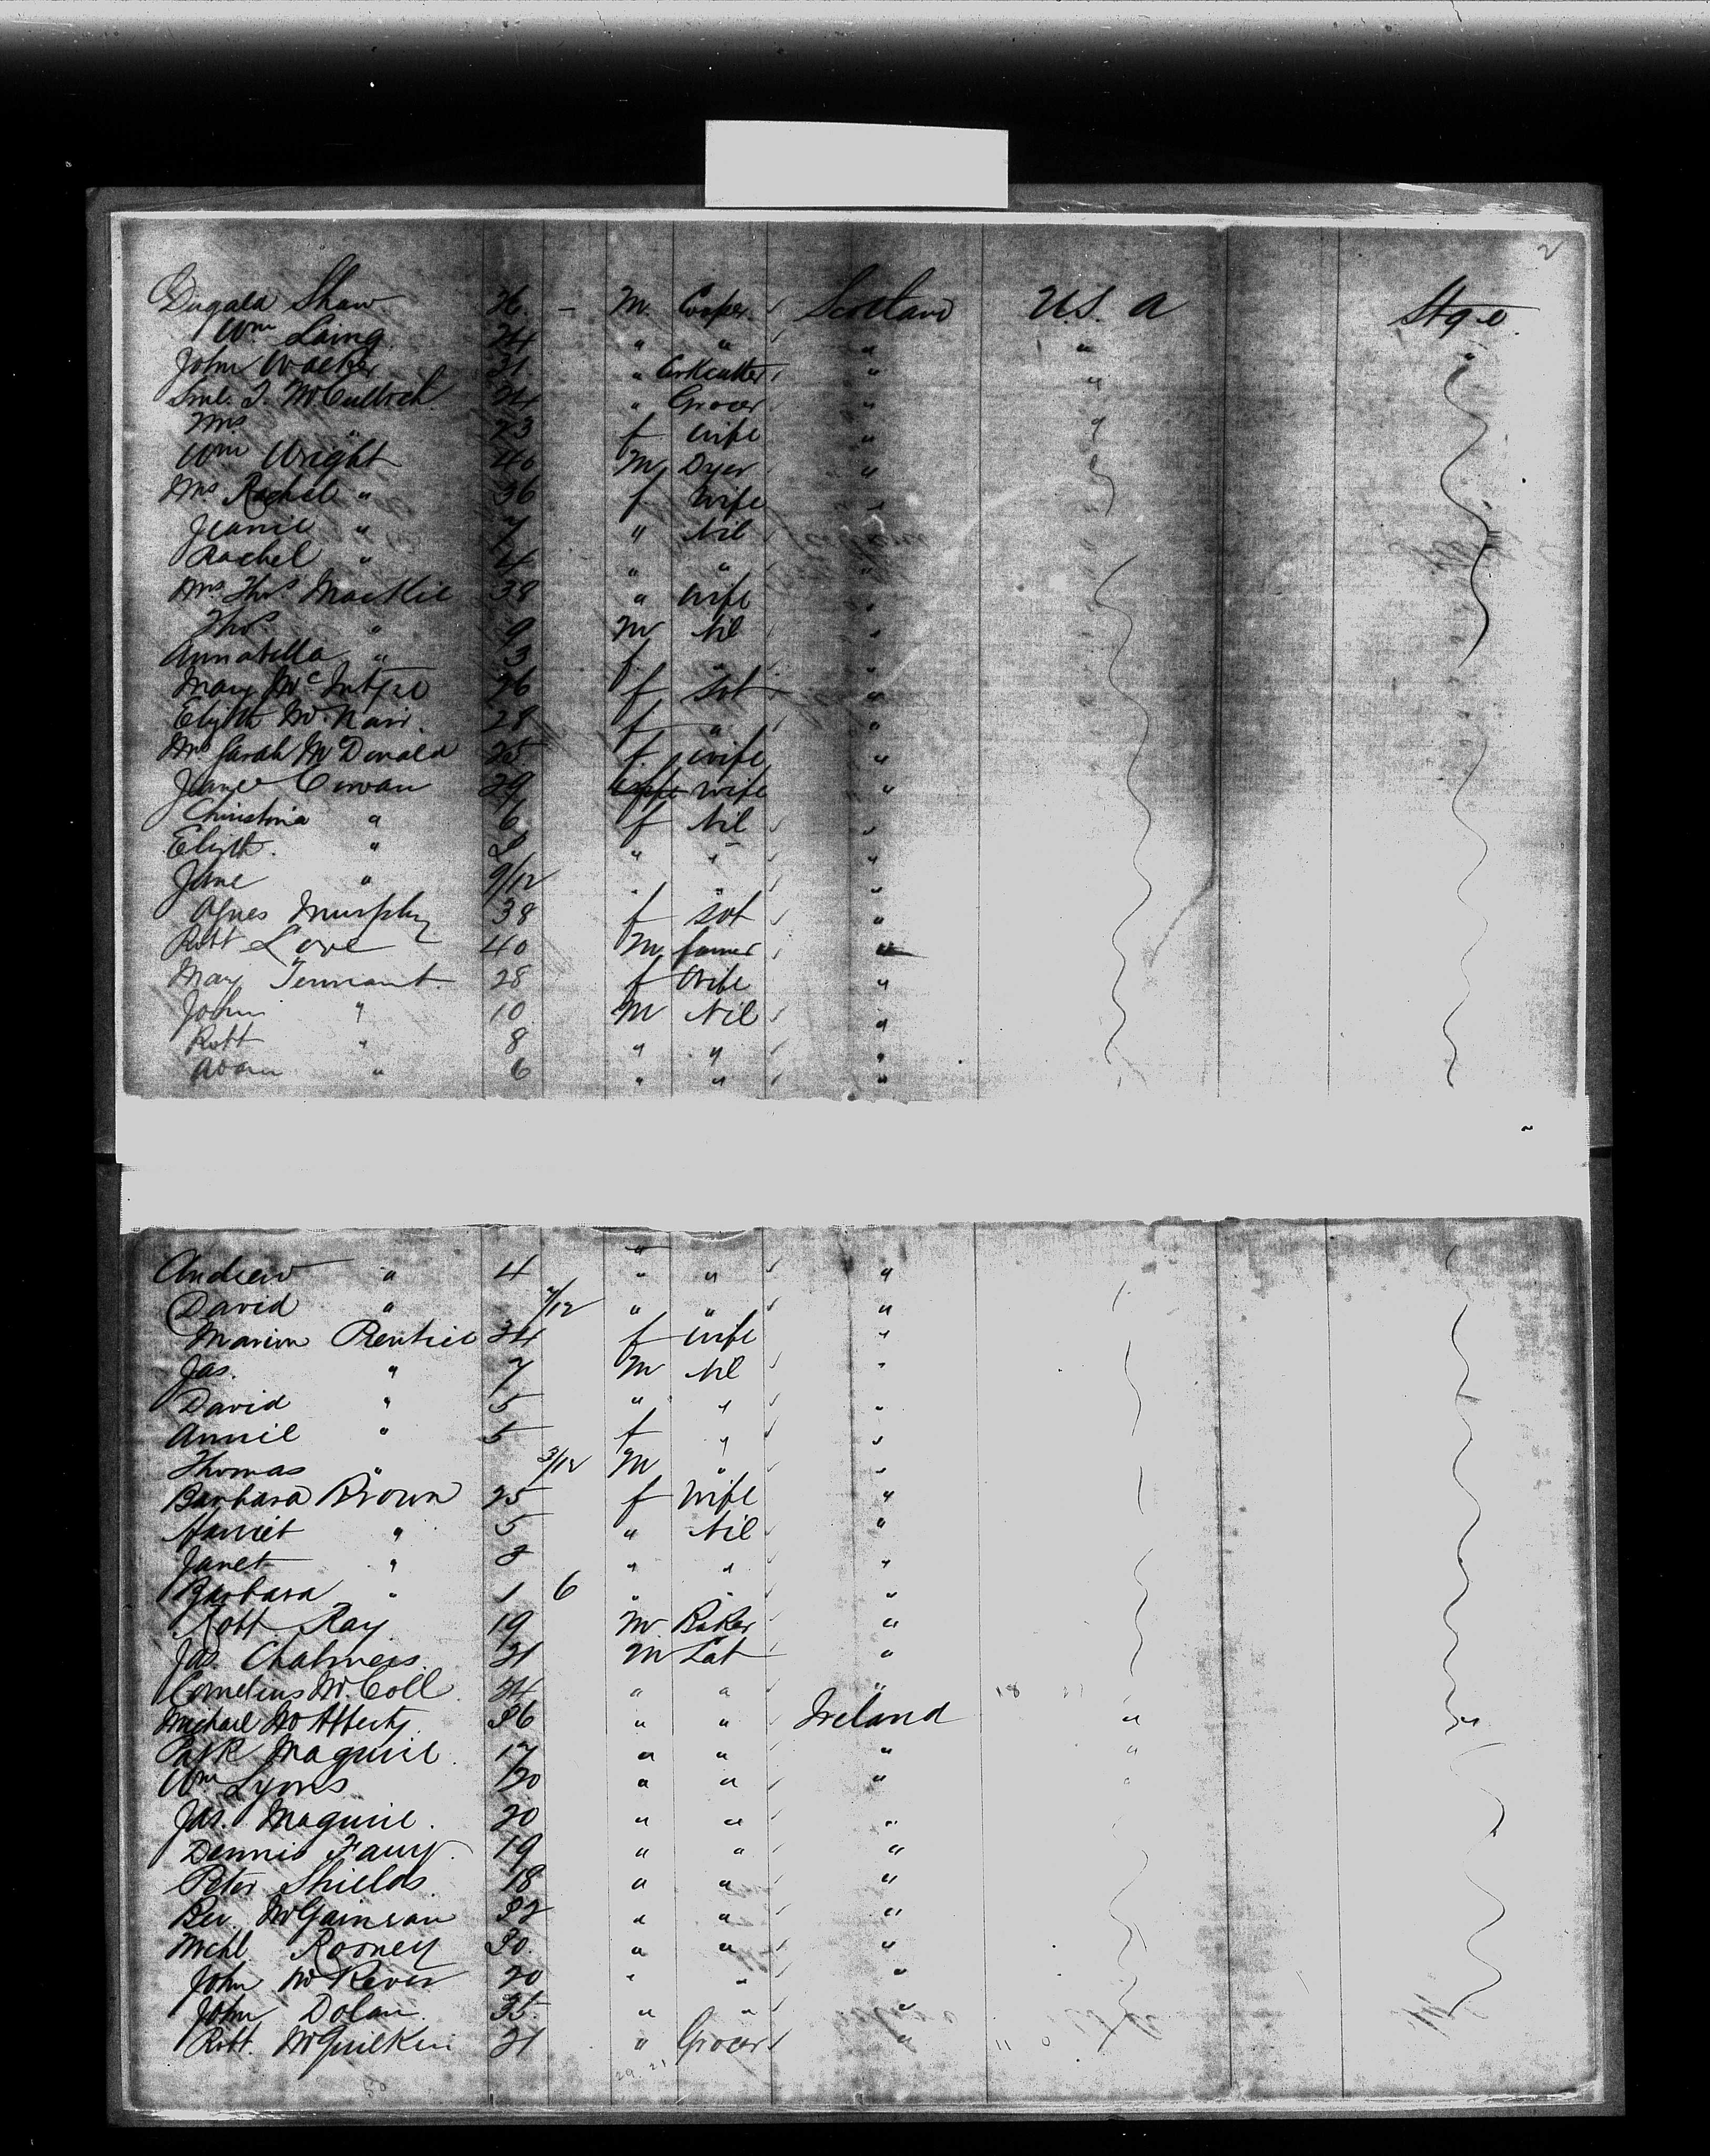 2
Dugald Shaw 26 - M. Cooper Scotland U.S. A Stge
Wm Laing 24 " " " " "
John Walker 21 " Corkcutter " "
Saml. T. McCulloch 24 " Grocer " "
Mrs " 23 f Wife " "
Wm Wright 40 M Dyer "
Mrs Rachel " 36 f Wife "
Jeanie " 7 " Nil
Rachel " 4 " " "
Mrs Thos MacKie 38 " Wife "
Thos " 9 M Nil "
Annabella " 3 f " "
Mary McIntyre 26 f Svt "
Elizth McNair 28 f " "
Mrs Sarah McDonald 25 f Wife "
Jane Cowan 29 Wife "
Christina " 6 f Nil "
Elizth " " " "
Jane " 9/12 " " "
Agnes Murphy 38 f Svt "
Robt Love 40 M farmer "
Mary Tennant 28 f Wife "
John " 10 M Nil "
Robt " 8 " " "
Adam " 6 " " "
Andrew " 4 " " "
David " /12 " " "
Marion Rentice 34 f Wife "
Jas. " 7 M Nil "
David " 5 " " "
Annie " 5 f " "
Thomas " 3/12 M " "
Barbara Brown 25 f Wife "
Harriet " 5 " Nil "
Janet " 3 " " "
Barbara " 1 6 " " "
Robt Ray 19 M Baker "
Jas. Chalmers 21 M Lab "
Cornelius McColl 24 " " "
Michael McAfferty 26 " " Ireland " "
Patk Maguire 17 " " " "
Wm Lyons 20 " " " "
Jas. Maguire 20 " " "
Dennis 19 " " "
Peter Shields 18 " " "
" " "
Michl Rooney 30 " " "
John 20 " " "
John Dolan 35 " " "
Robt. McQuilken 21 " Grocer "